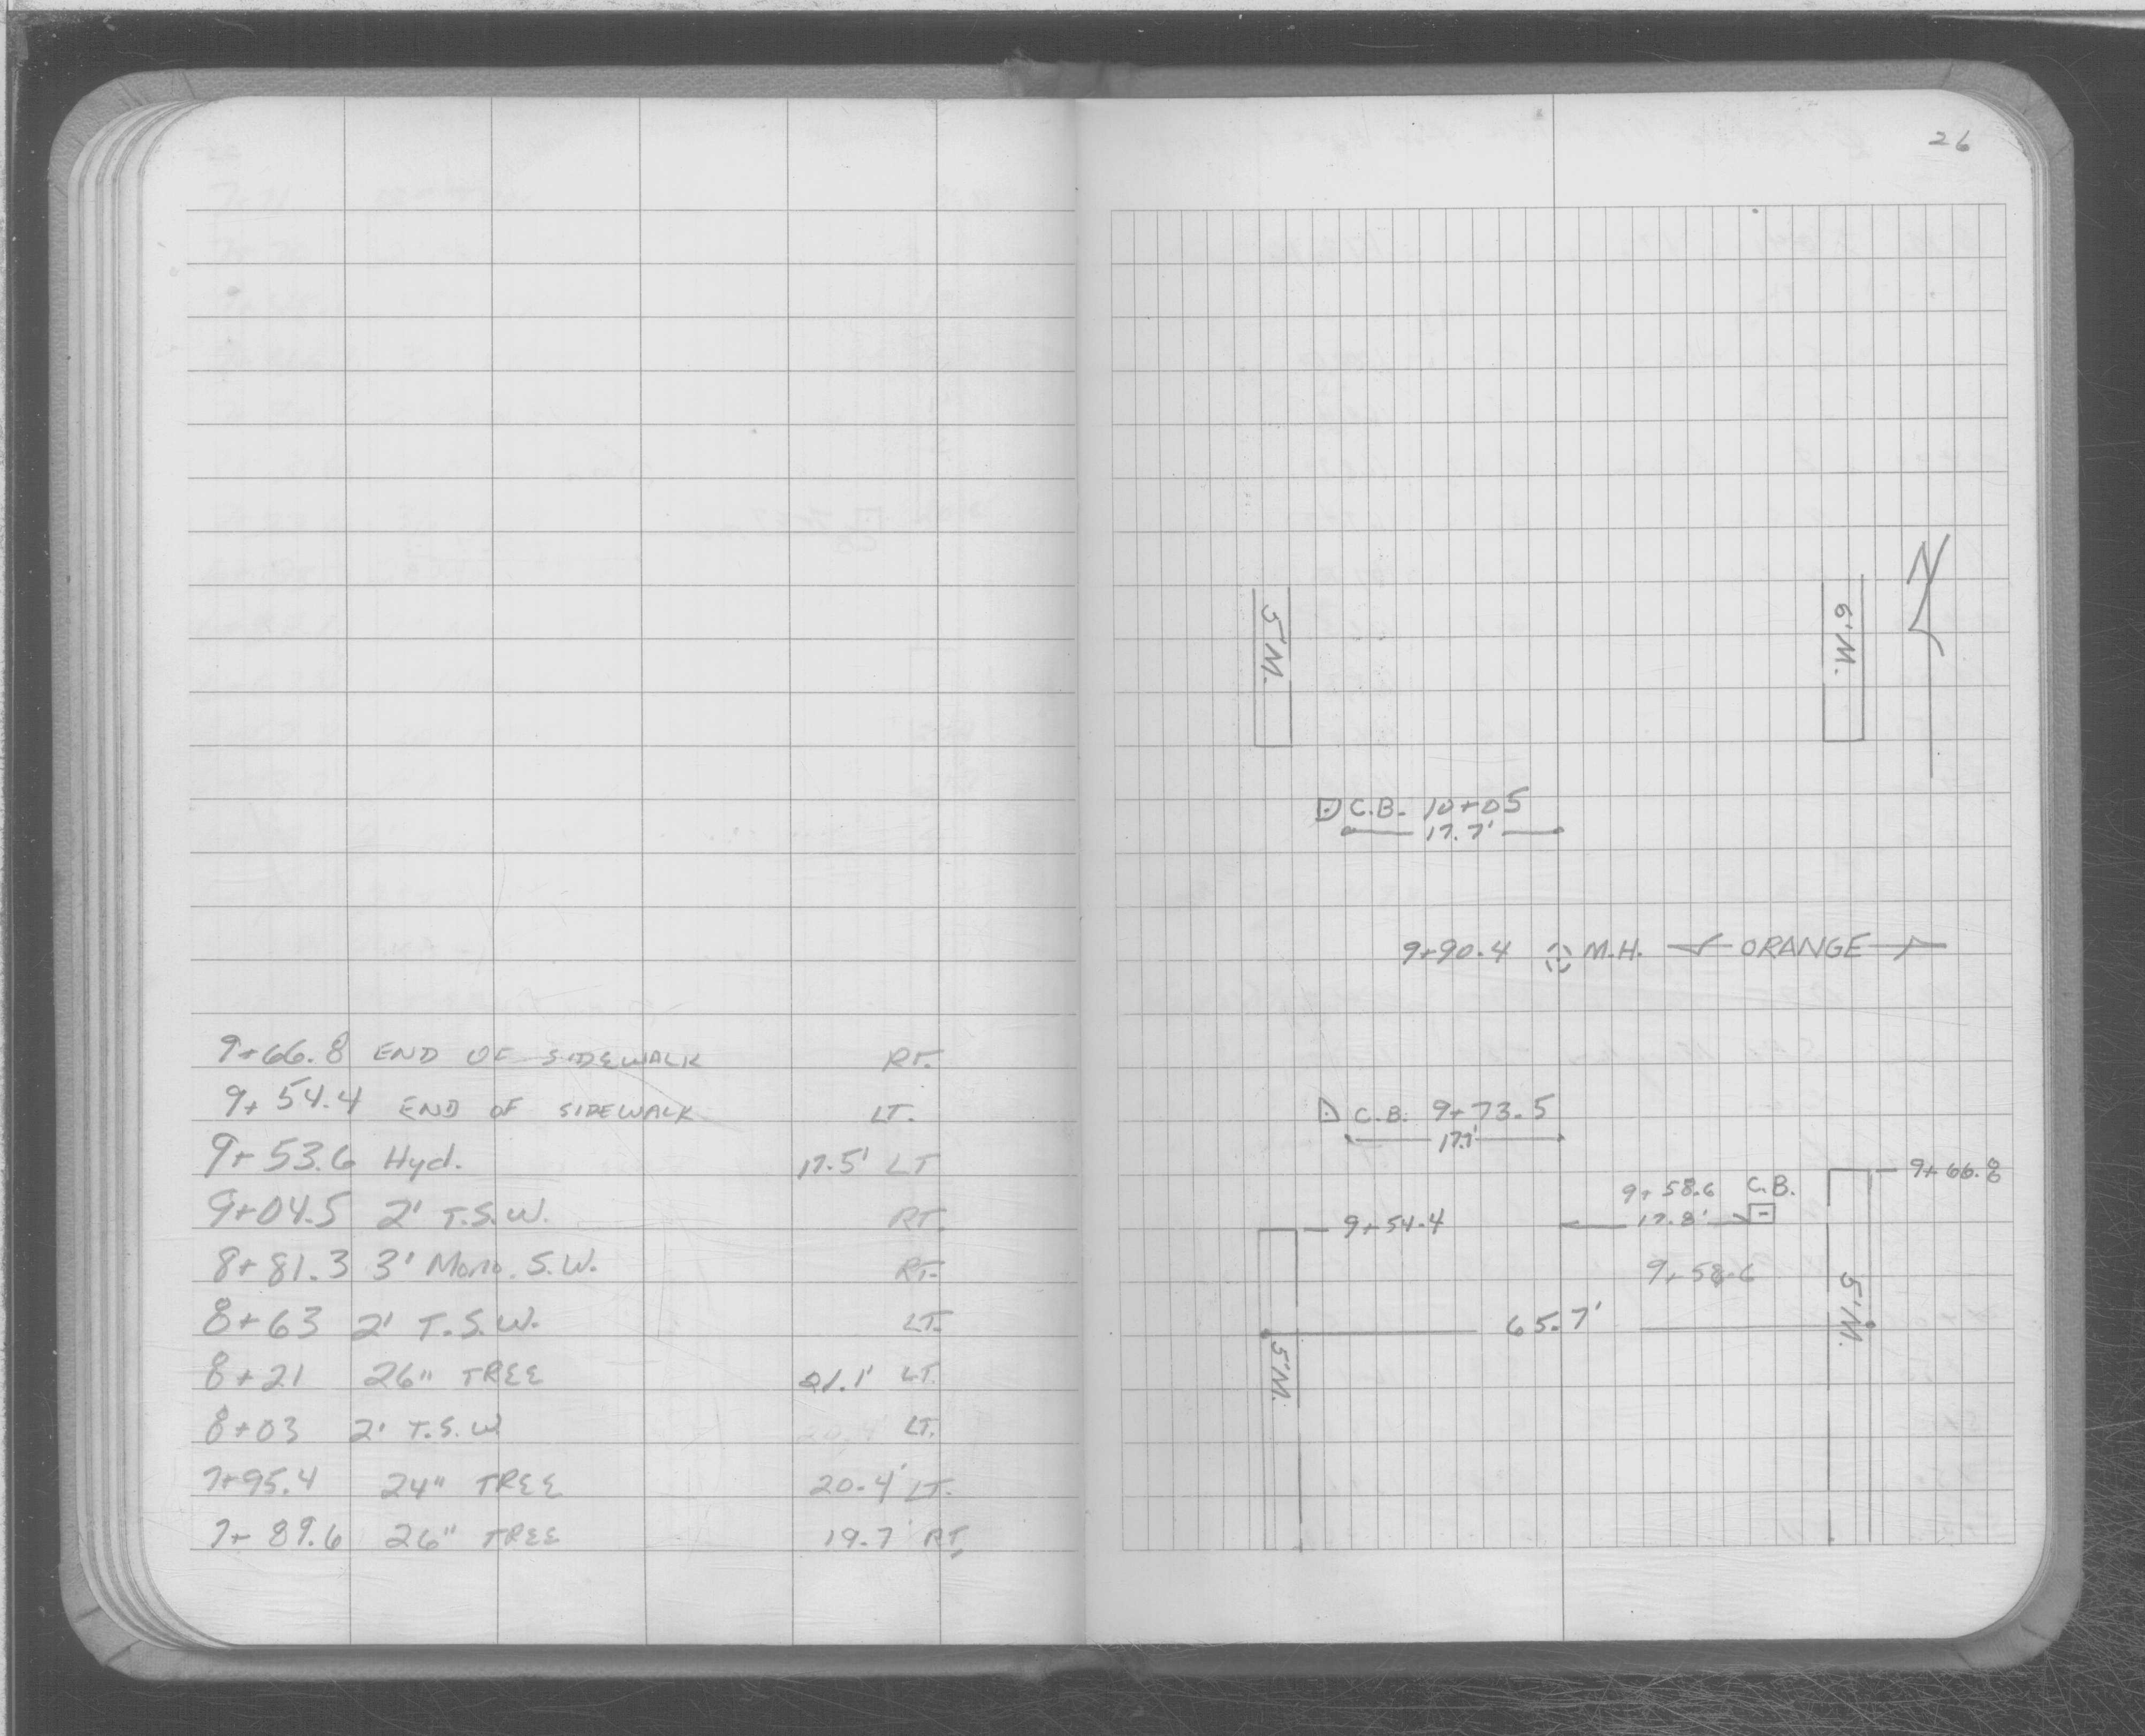 9+66.8 END OF SIDEWALK RT.
9+54.4 END OF SIDEWALK LT.
9+53.6 Hyd. 17.5' LT
9+04.5 2' T.S.W. RT.
8+81.3 3' Mono. S.W. RT.
8+63 2' T.S.W. LT.
8+21 26" TREE 21.1' LT.
8+03 2' T.S.W LT.
7+95.4 24" TREE 20.4' LT.
7+89.6 26" TREE 19.7' RT.
26
N
5'M.
6'M.
C.B. 10+05
17.7'
9+90.4 M.H. ORANGE
C.B. 9+73.5
17.7'
9+66.8
9+58.6 C.B.
17.8'
9+54.4
9+58.6
65.7'
5'M.
5'M.